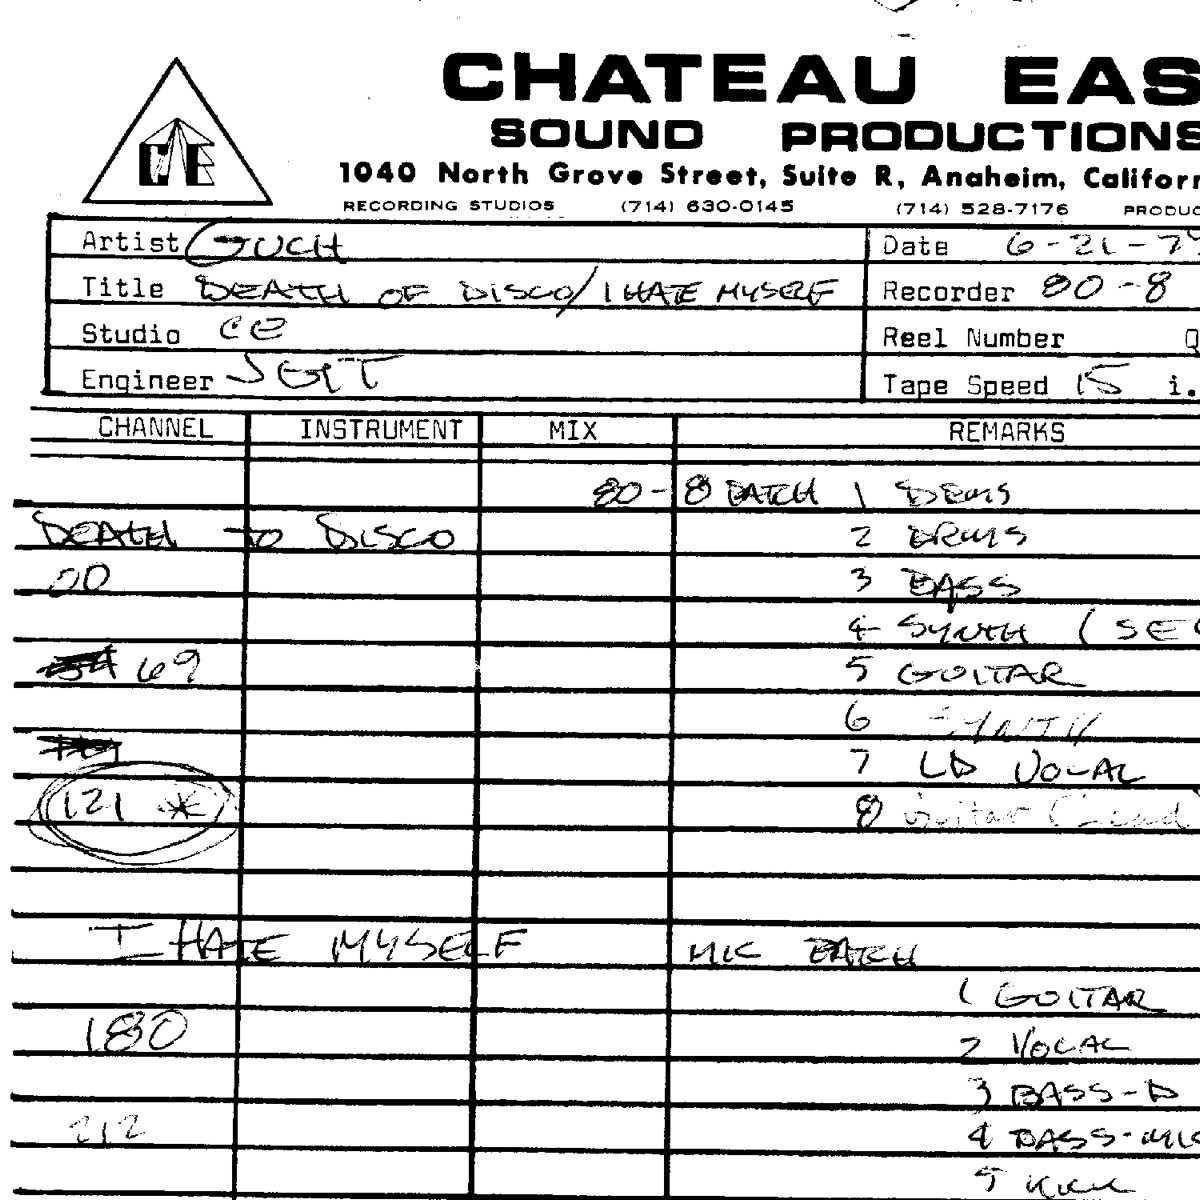 CHATEAU EAS
SOUND PRODUCTIONS
1040 North Grove Street, Suite R, Anaheim, Californ
RECORDING STUDIOS (714) 630-0145 (714) 528-7176 PRODUC
CE
Artist GUCH Date 6-21-79
Title DEATH OF DISCO/I HATE MYSELF Recorder 80-8
Studio CE Reel Number Q
Engineer Tape Speed 15 i.
CHANNEL INSTRUMENT MIX REMARKS
80-8 PATCH 1 DRUMS
DEATH TO DISCO 2 DRUMS
00 3 BASS
4 SYNTH (SEC
69 5 GUITAR
6 SYNTH
7 LD VOCAL
121 * 8 Guitar (Lead)
I HATE MYSELF MIC PATCH
1 GUITAR
180 2 VOCAL
3 BASS-D
212 4 BASS-MIC
5 KICK